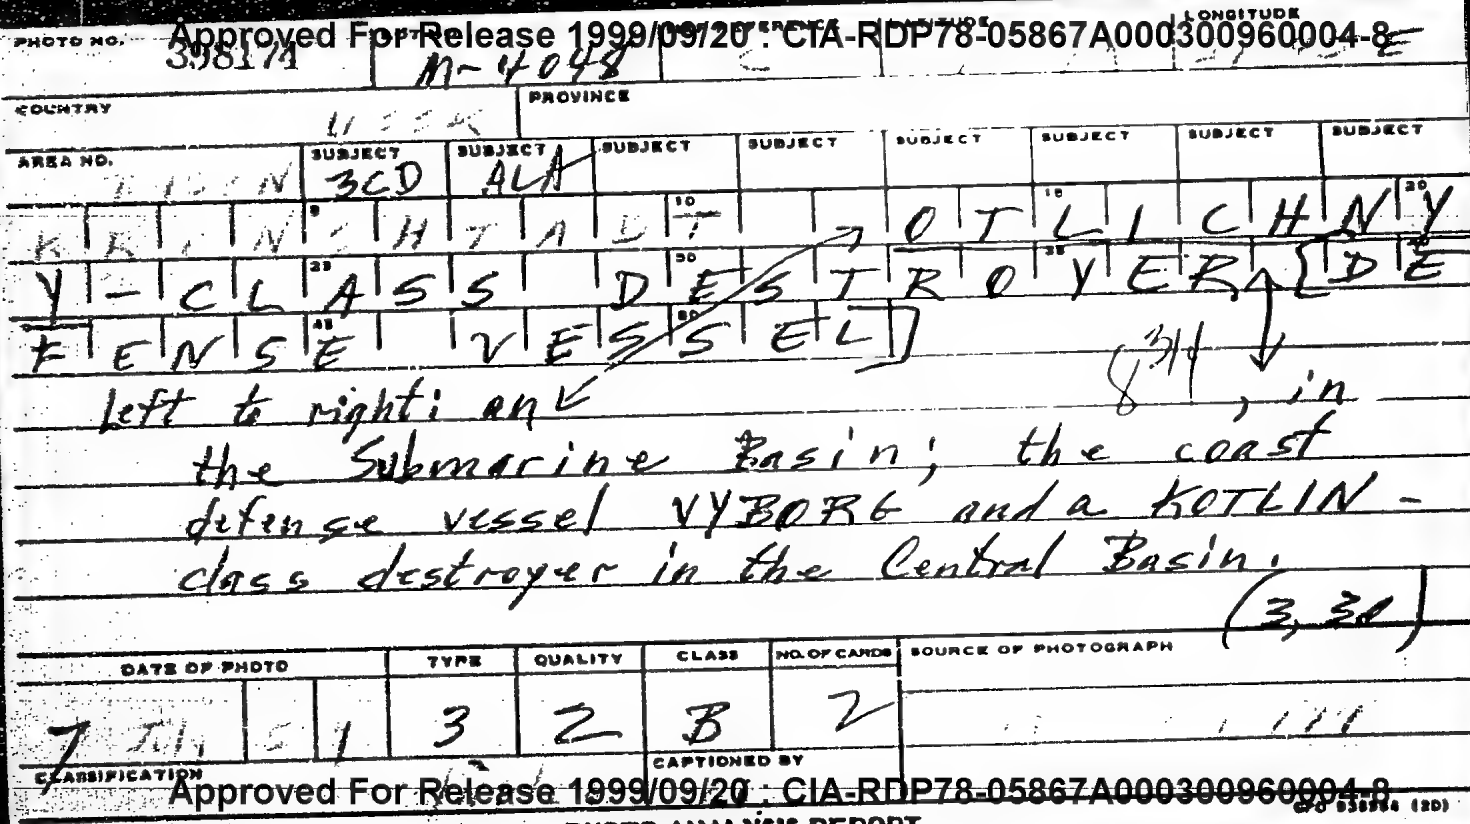 PHOTO NO. LATITUDE LONGITUDE
Approved For Release 1999/09/20 : CIA-RDP78-05867A000300960004-8
398174 M-4048 E
COUNTRY PROVINCE
USSR
AREA NO. SUBJECT SUBJECT SUBJECT SUBJECT SUBJECT SUBJECT SUBJECT SUBJECT
3CD ALA
KRONSHTADT OTLICHNY
Y-CLASS DESTROYER, [DE
FENSE VESSEL]
Left to right: an , in
the Submarine Basin; the coast
defense vessel VYBORG and a KOTLIN-
class destroyer in the Central Basin.
DATE OF PHOTO TYPE QUALITY CLASS NO. OF CARDS SOURCE OF PHOTOGRAPH
7 July 5 1 3 2 B 2
CLASSIFICATION CAPTIONED BY
Approved For Release 1999/09/20 : CIA-RDP78-05867A000300960004-8
(20)